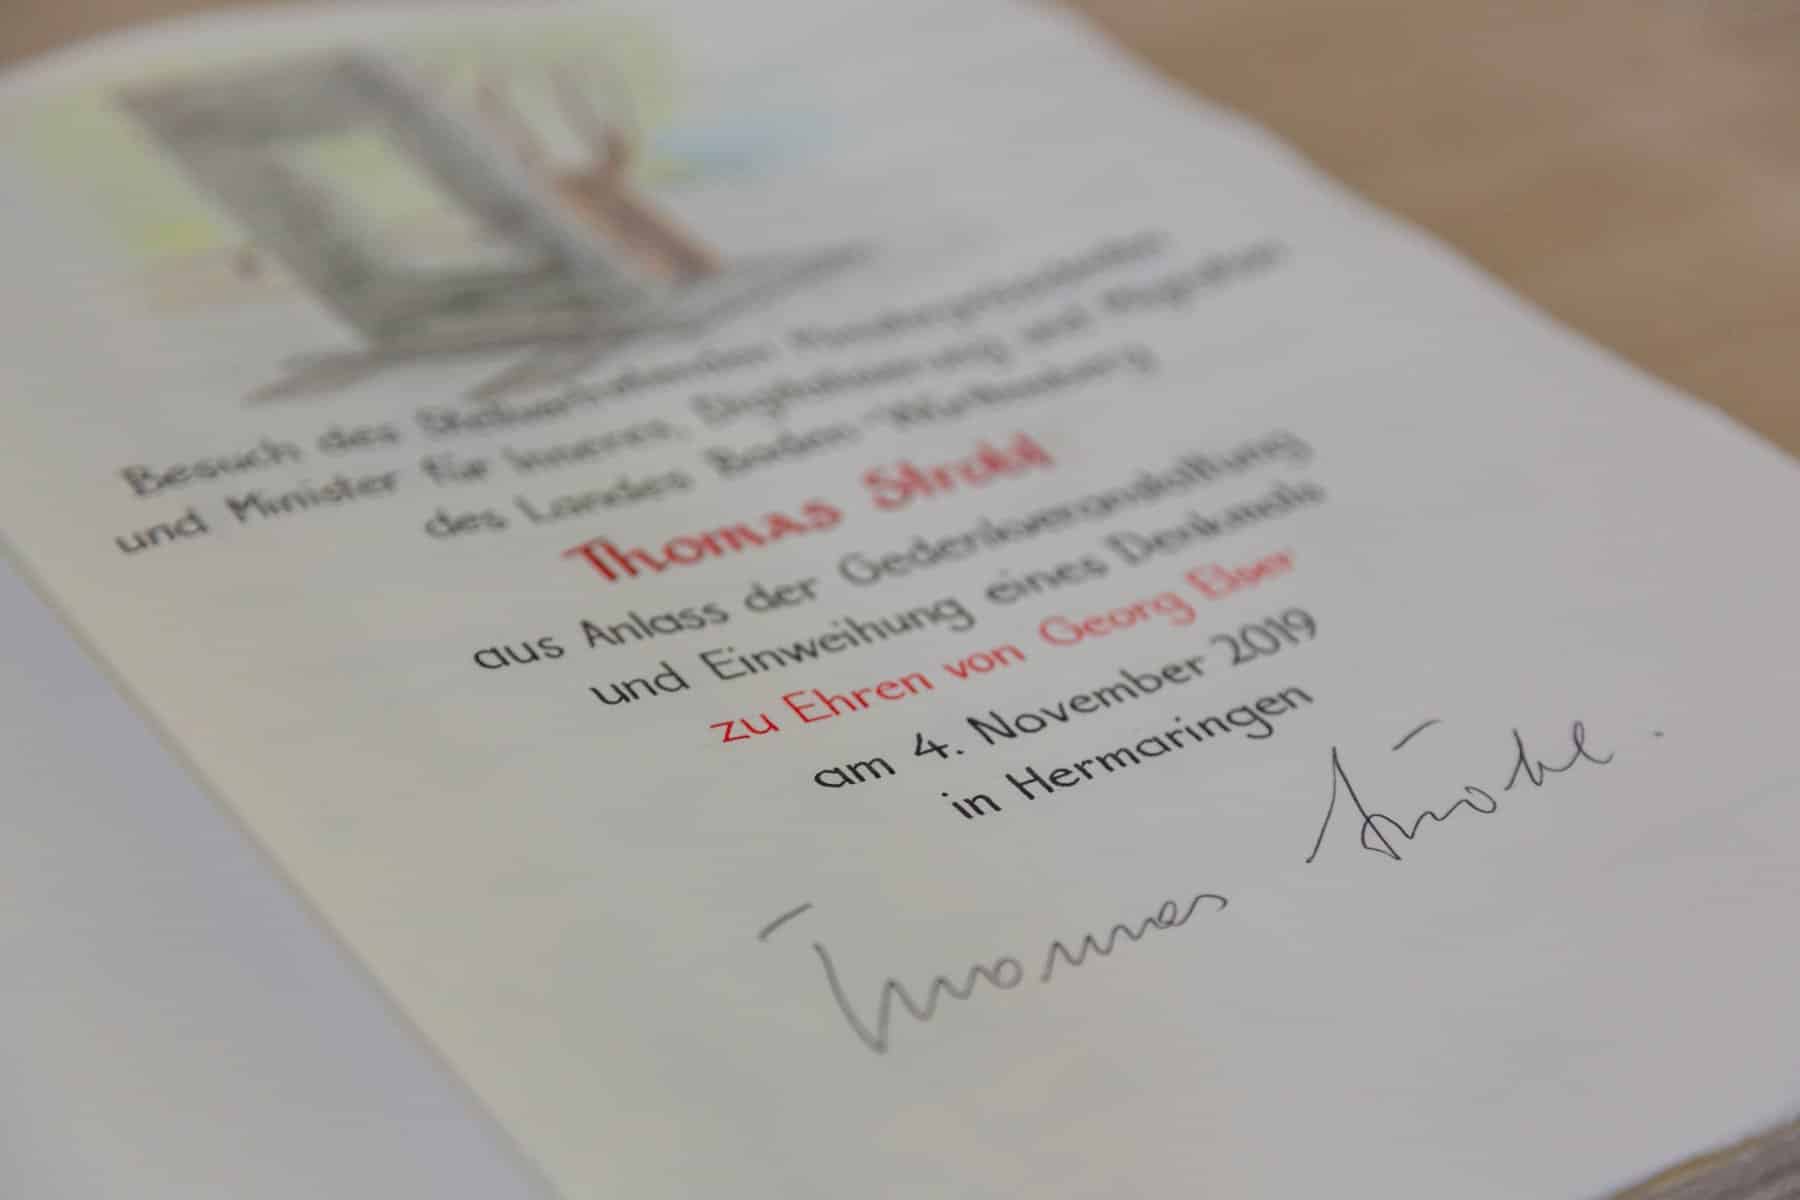 Besuch des Stellvertretenden Ministerpräsidenten
und Minister für Inneres, Digitalisierung und Migration
des Landes Baden-Württemberg
Thomas Strobl
aus Anlass der Gedenkveranstaltung
und Einweihung eines Denkmals
zu Ehren von Georg Elser
am 4. November 2019
in Hermaringen
Thomas Strobl.